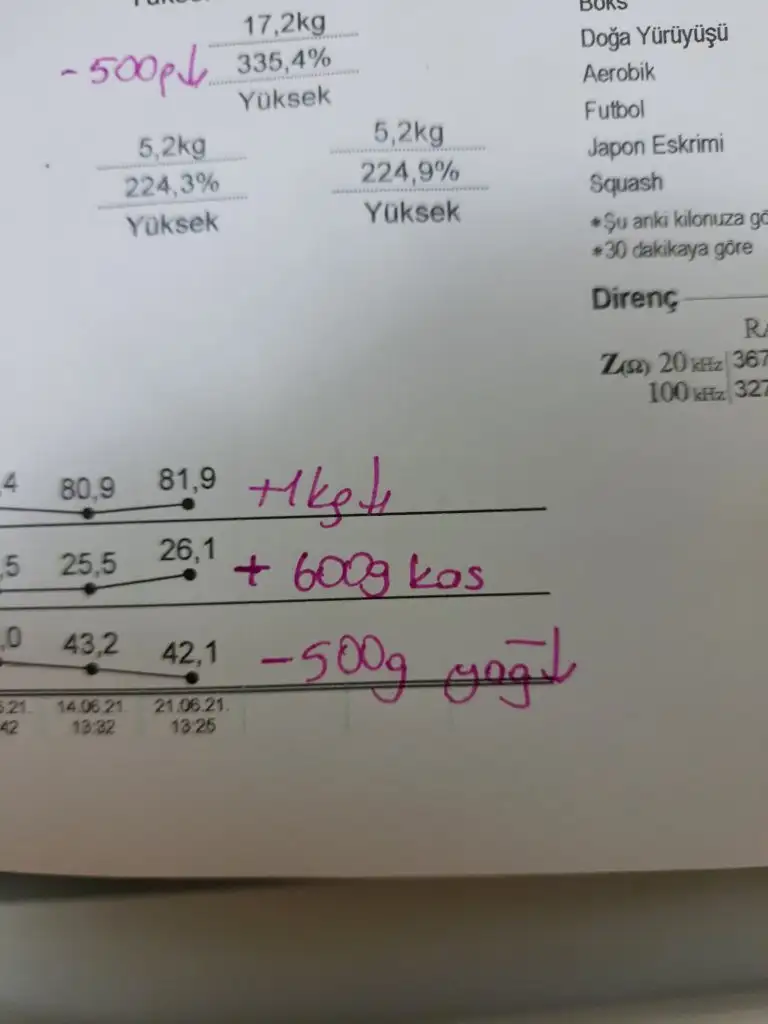 17,2kg
-500g↓
335,4%
Yüksek
5,2kg
224,3%
Yüksek
5,2kg
224,9%
Yüksek
Boks
Doğa Yürüyüşü
Aerobik
Futbol
Japon Eskrimi
Squash
*Şu anki kilonuza gö
*30 dakikaya göre
Direnç
RA
Z(Ω) 20 kHz 367
100 kHz 327
,4 80,9 81,9 +1kg↓
,5 25,5 26,1 + 600g kas
,0 43,2 42,1 -500g yağ↓
6.21. 14.06.21. 21.06.21.
:42 13:32 13:25